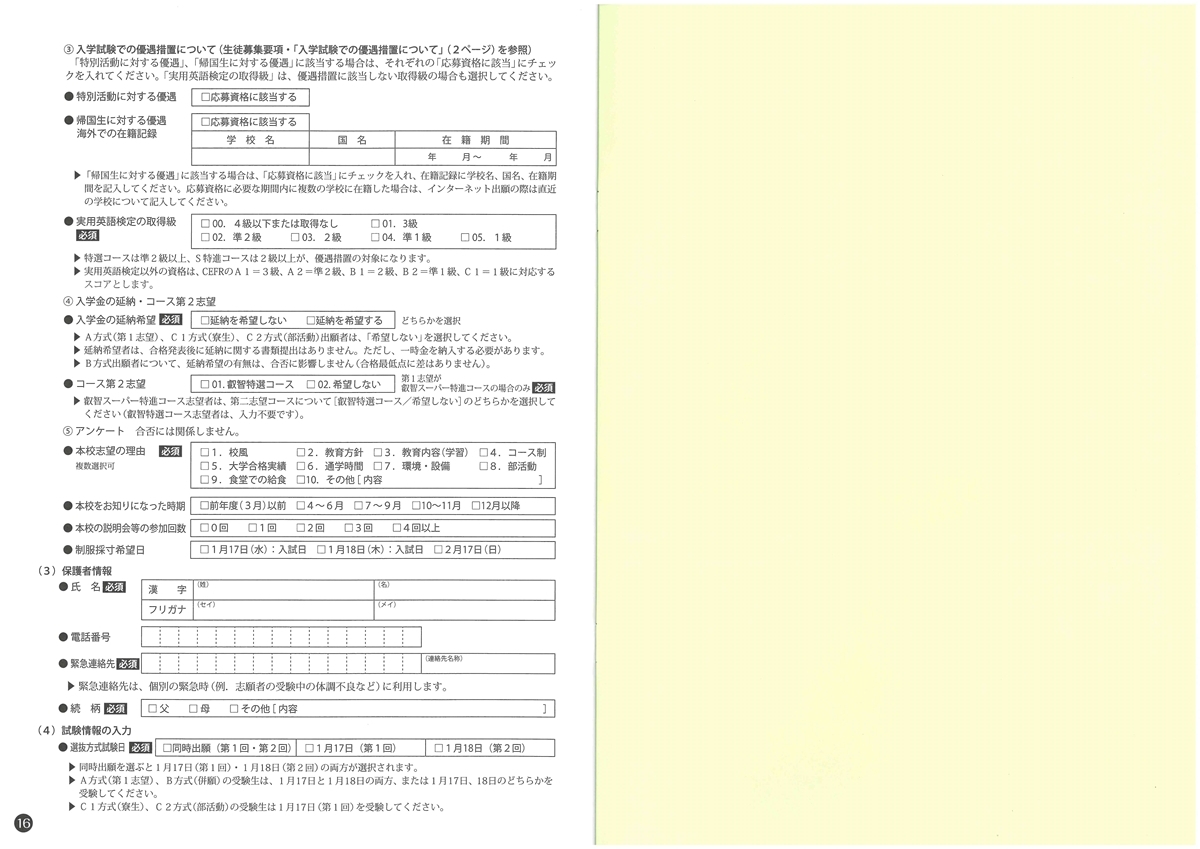 ③入学試験での優遇措置について（生徒募集要項・「入学試験での優遇措置について」（２ページ）を参照）
「特別活動に対する優遇」、「帰国生に対する優遇」に該当する場合は、それぞれの「応募資格に該当」にチェッ
クを入れてください。「実用英語検定の取得級」は、優遇措置に該当しない取得級の場合も選択してください。
●特別活動に対する優遇 □応募資格に該当する
●帰国生に対する優遇 □応募資格に該当する
海外での在籍記録 学校名 国名 在籍期間
年 月～ 年 月
▶「帰国生に対する優遇」に該当する場合は、「応募資格に該当」にチェックを入れ、在籍記録に学校名、国名、在籍期
間を記入してください。応募資格に必要な期間内に複数の学校に在籍した場合は、インターネット出願の際は直近
の学校について記入してください。
●実用英語検定の取得級 □00．４級以下または取得なし □01．3級
必須 □02．準２級 □03．２級 □04．準１級 □05．１級
▶特選コースは準２級以上、Ｓ特進コースは２級以上が、優遇措置の対象になります。
▶実用英語検定以外の資格は、CEFRのＡ１＝３級、Ａ２＝準２級、Ｂ１＝２級、Ｂ２＝準１級、Ｃ１＝１級に対応する
スコアとします。
④入学金の延納・コース第２志望
●入学金の延納希望 必須 □延納を希望しない □延納を希望する どちらかを選択
▶Ａ方式（第１志望）、Ｃ１方式（寮生）、Ｃ２方式（部活動）出願者は、「希望しない」を選択してください。
▶延納希望者は、合格発表後に延納に関する書類提出はありません。ただし、一時金を納入する必要があります。
▶Ｂ方式出願者について、延納希望の有無は、合否に影響しません（合格最低点に差はありません）。
●コース第２志望 □01.叡智特選コース □02.希望しない 第１志望が
叡智スーパー特進コースの場合のみ 必須
▶叡智スーパー特進コース志望者は、第二志望コースについて［叡智特選コース／希望しない］のどちらかを選択して
ください（叡智特選コース志望者は、入力不要です）。
⑤アンケート 合否には関係しません。
●本校志望の理由 必須 □１．校風 □２．教育方針 □３．教育内容（学習） □４．コース制
複数選択可 □５．大学合格実績 □６．通学時間 □７．環境・設備 □８．部活動
□９．食堂での給食 □10．その他［内容 ］
●本校をお知りになった時期 □前年度（３月）以前 □４～６月 □７～９月 □10～11月 □12月以降
●本校の説明会等の参加回数 □０回 □１回 □２回 □３回 □４回以上
●制服採寸希望日 □１月17日（水）：入試日 □１月18日（木）：入試日 □２月17日（日）
（３）保護者情報
●氏名 必須 漢字 （姓） （名）
フリガナ （セイ） （メイ）
●電話番号
●緊急連絡先 必須 （連絡先名称）
▶緊急連絡先は、個別の緊急時（例．志願者の受験中の体調不良など）に利用します。
●続柄 必須 □父 □母 □その他［内容 ］
（４）試験情報の入力
●選抜方式試験日 必須 □同時出願（第１回・第２回） □１月17日（第１回） □１月18日（第２回）
▶同時出願を選ぶと１月17日（第１回）・１月18日（第２回）の両方が選択されます。
▶Ａ方式（第１志望）、Ｂ方式（併願）の受験生は、１月17日と１月18日の両方、または１月17日、18日のどちらかを
受験してください。
▶Ｃ１方式（寮生）、Ｃ２方式（部活動）の受験生は１月17日（第１回）を受験してください。
16